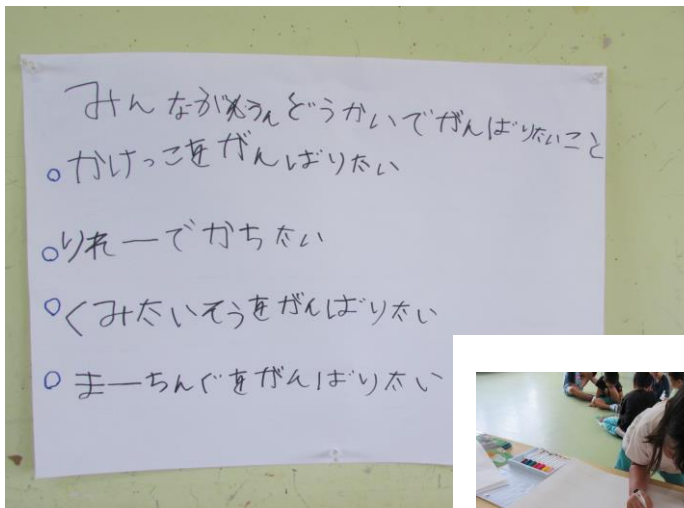 みんながうんどうかいでがんばりたいこと
○かけっこをがんばりたい
○りれーでかちたい
○くみたいそうをがんばりたい
○まーちんぐをがんばりたい